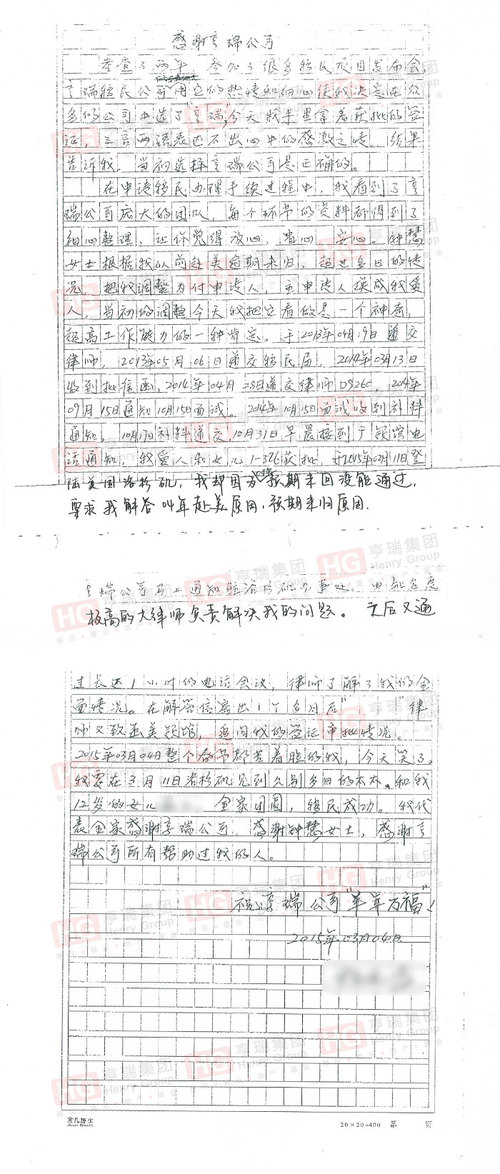 感谢亨瑞公司
考查了两年 参加了很多移民项目发布会,
亨瑞移民公司用它的热情和耐心使我决定在众
多的公司中选了亨瑞今天我手里拿着获批的签
证,三言两语表达不出心中的感激之情。结果
告诉我,当初选择亨瑞公司是正确的。
在申请移民办理手续过程中,我看到了亨
瑞公司庞大的团队,每个环节的资料都得到了
细心整理,让你觉得放心,省心,安心。钟慧
女士根据我以前赴美逾期未归,超过多日的情
况,把我调整为付申请人,主申请人换成我爱
人,当初的调整今天我把它看做是一个神奇,
极高工作能力的一种肯定。于2013年04月19日递交
律师,2013年05月06日递交移民局,2014年03月13日
收到批信函,2014年04月28日递交律师DS260,2014年
09月15日通知10月15日面试。2014年10月15日面试收到补料
通知,10月17日补料递交10月31日早晨接到广领馆电
话通知,我爱人和女儿I-526获批,于2015年03月11日登
陆美国洛杉矶,我却因为预期未回没能通过,
要求我解答04年赴美原因,预期未归原因.
亨瑞公司马上通知驻洛杉矶办事处,由能力
极高的大律师负责解决我的问题。之后又通
过长达1小时的电话会议,律师了解了我的全
面情况。在解答信寄出1个多月后"律
师又致函美领馆,追问我的签证审批情况。
2015年03月04日整个春节都苦着脸的我,今天笑了,
我要在3月11日洛杉矶见到久别多日的太太,和我
12岁的女儿 全家团圆,移民成功。我代
表全家感谢亨瑞公司,感谢钟慧女士,感谢亨
瑞公司所有帮助过我的人。
祝亨瑞公司"羊羊万福"!
2015年03月04日
20×20=400 第 页
亨瑞集团
Henry Group
HG